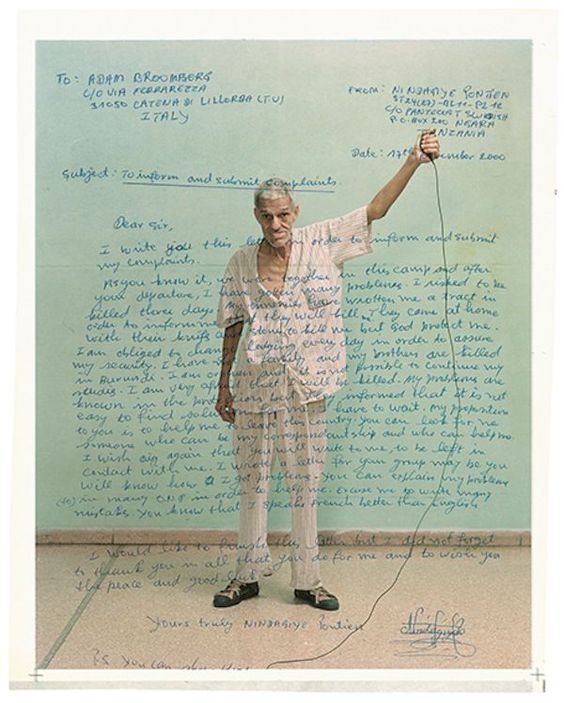 TO: ADAM BROOMBERG
C/O VIA FERRAREZZA
31050 CATENA DI LILLORBA (T.V)
ITALY
FROM: NINDAGIYE PONTIEN
C/O PANTECOST SWEDISH
P.O. BOX 200 NGARA
TANZANIA
Date: 17th December 2000
Subject: To inform and submit complaints.
Dear Sir,
I write you this letter in order to inform and submit
my complaints.
As you know it, we were together in this camp and after
your departure, I have gotten many problems. I risked to be
killed three days ago. My enemies have written me a tract in
order to inform me that they will kill. They came at home
with their knifes and stone to kill me but God protect me.
I am obliged to change lodging every day in order to assure
my security. I have no family and my brothers are killed
in Burundi. I am orphan and it is not possible to continue my
studies. I am very afraid that I will be killed. My problems are
known in the protections but they informed that it is not
easy to find solution. I have to wait. My proposition
to you is to help me to leave this country. You can look for me
someone who can be my correspondantship and who can help me.
I wish again that you will write to me, to be left in
contact with me. I wrote a letter for your group may be you
will know how I got problems. You can explain my problem
in many ONG in order to help me. Excuse me to write many
mistakes. You know that I speake french better than English
I would like to finish this letter but I did not forget
to thank you in all that you do for me and to wish you
the peace and good luck
Yours truly NINDAGIYE Pontien
P.S You can